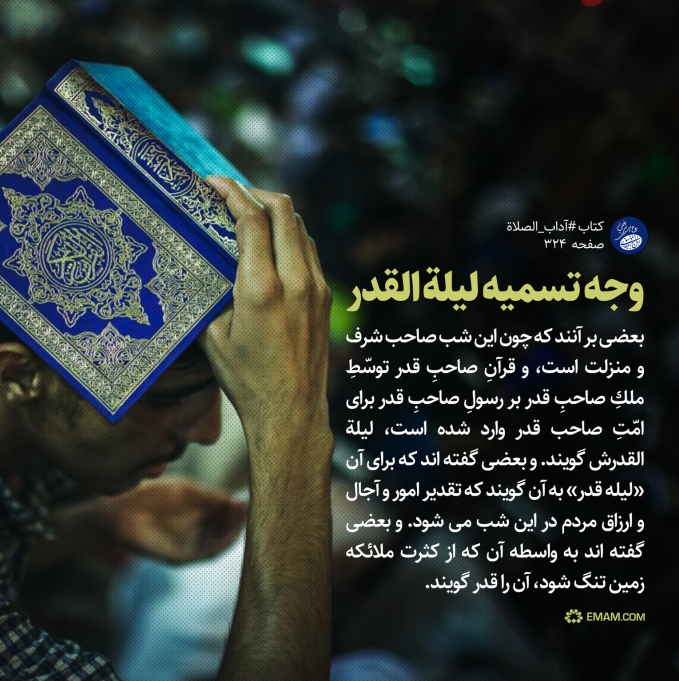 کتاب #آداب_الصلاة
صفحه ۳۲۴
وجه تسمیه لیلة القدر
بعضی بر آنند که چون این شب صاحب شرف
و منزلت است، و قرآنِ صاحبِ قدر توسّطِ
ملكِ صاحبِ قدر بر رسولِ صاحبِ قدر برای
امّتِ صاحب قدر وارد شده است، لیلة
القدرش گویند. و بعضی گفته اند که برای آن
«لیله قدر» به آن گویند که تقدیر امور و آجال
و ارزاق مردم در این شب می شود. و بعضی
گفته اند به واسطه آن که از کثرت ملائکه
زمین تنگ شود، آن را قدر گویند.
EMAM.COM